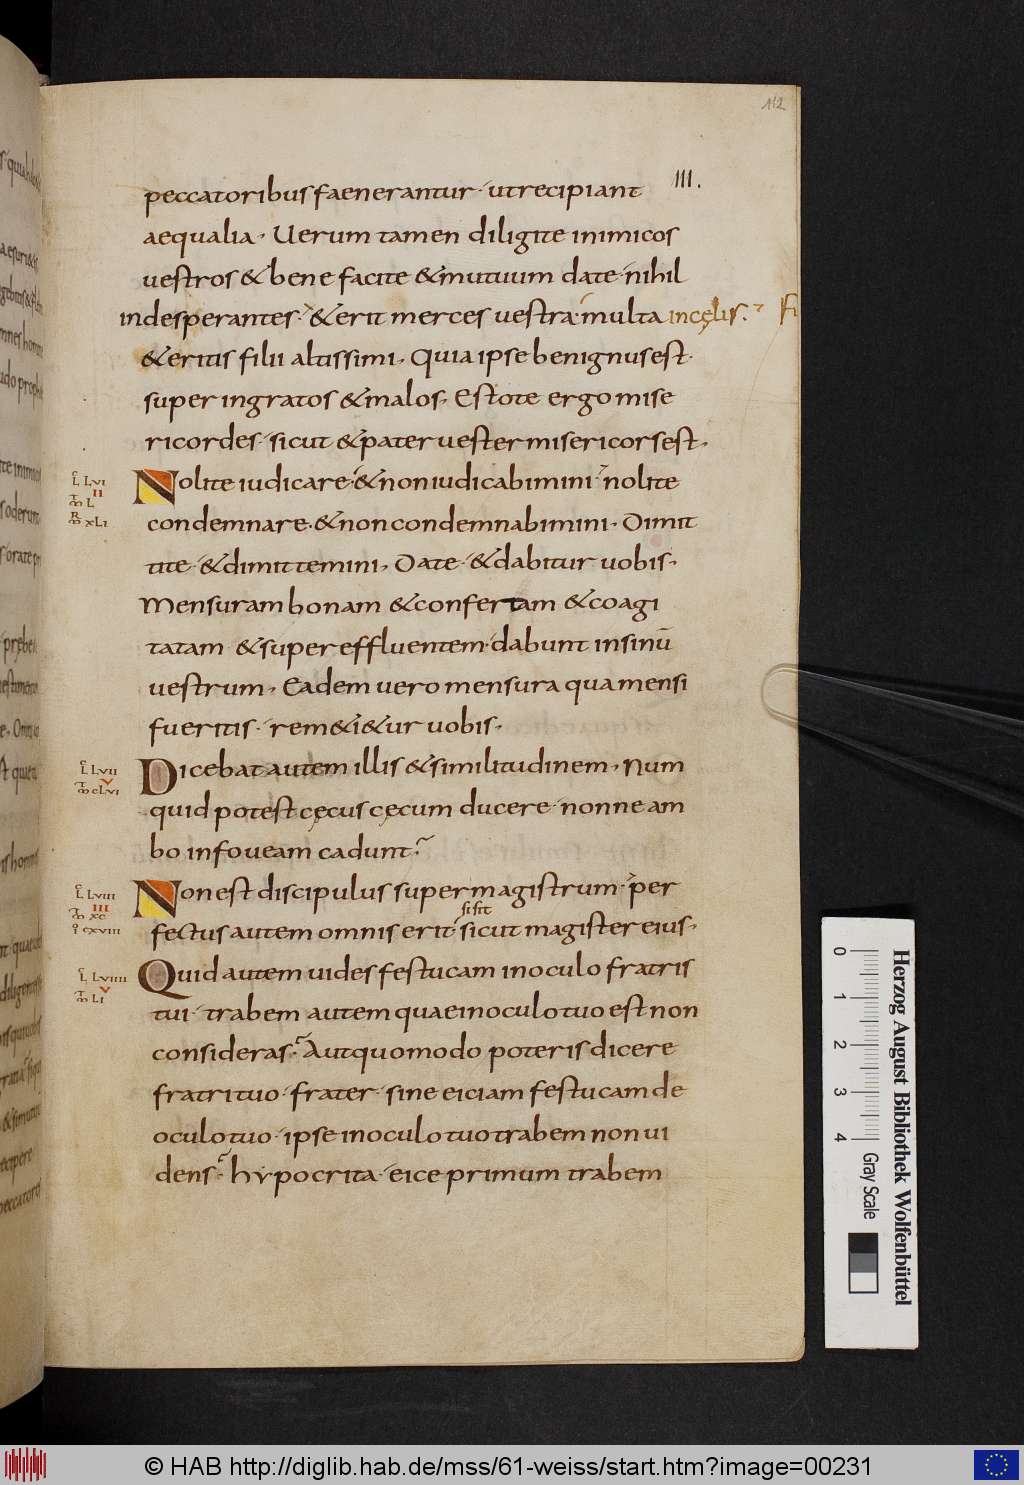 112
III.
peccatoribus faenerantur· ut recipiant
aequalia· Uerum tamen diligite inimicos
uestros & bene facite & mutuum date· nihil
indesperantes· & erit merces uestra· multa in cęlis.
& eritis filii altissimi· Quia ipse benignus est·
super ingratos & malos· Estote ergo mise
ricordes· sicut & pater uester misericors est·
L LVI
II
L
XLI
Nolite iudicare· & non iudicabimini· nolite
condemnare· & non condemnabimini· Dimit
tite· & dimittemini· Date· & dabitur uobis·
Mensuram bonam & confertam & coagi
tatam & supereffluentem· dabunt in sinū
uestrum· Eadem uero mensura qua mensi
fueritis· rem&i&ur uobis·
L LVII
V
CLVI
Dicebat autem illis & similitudinem· Num
quid potest cęcus cęcum ducere· nonne am
bo in foueam cadunt?
L LVIII
III
XC
CXVIII
Non est discipulus super magistrum· per
si sit
fectus autem omnis erit· sicut magister eius·
L LVIIII
V
LI
Quid autem uides festucam in oculo fratris
tui· trabem autem quae in oculo tuo est non
consideras? Aut quomodo poteris dicere
fratri tuo· frater· sine eiciam festucam de
oculo tuo· ipse in oculo tuo trabem non ui
dens? hypocrita· eice primum trabem
0 1 2 3 4
Gray Scale
Herzog August Bibliothek Wolfenbüttel
© HAB http://diglib.hab.de/mss/61-weiss/start.htm?image=00231